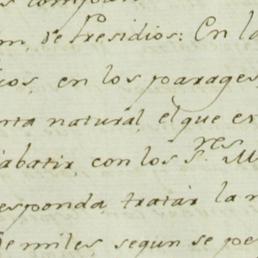 m, de Presidios: En la
cos, en los parages,
nta natural, el que es
abatir, con los S.res M
esponda, tratar la n
de miles, segun se pe